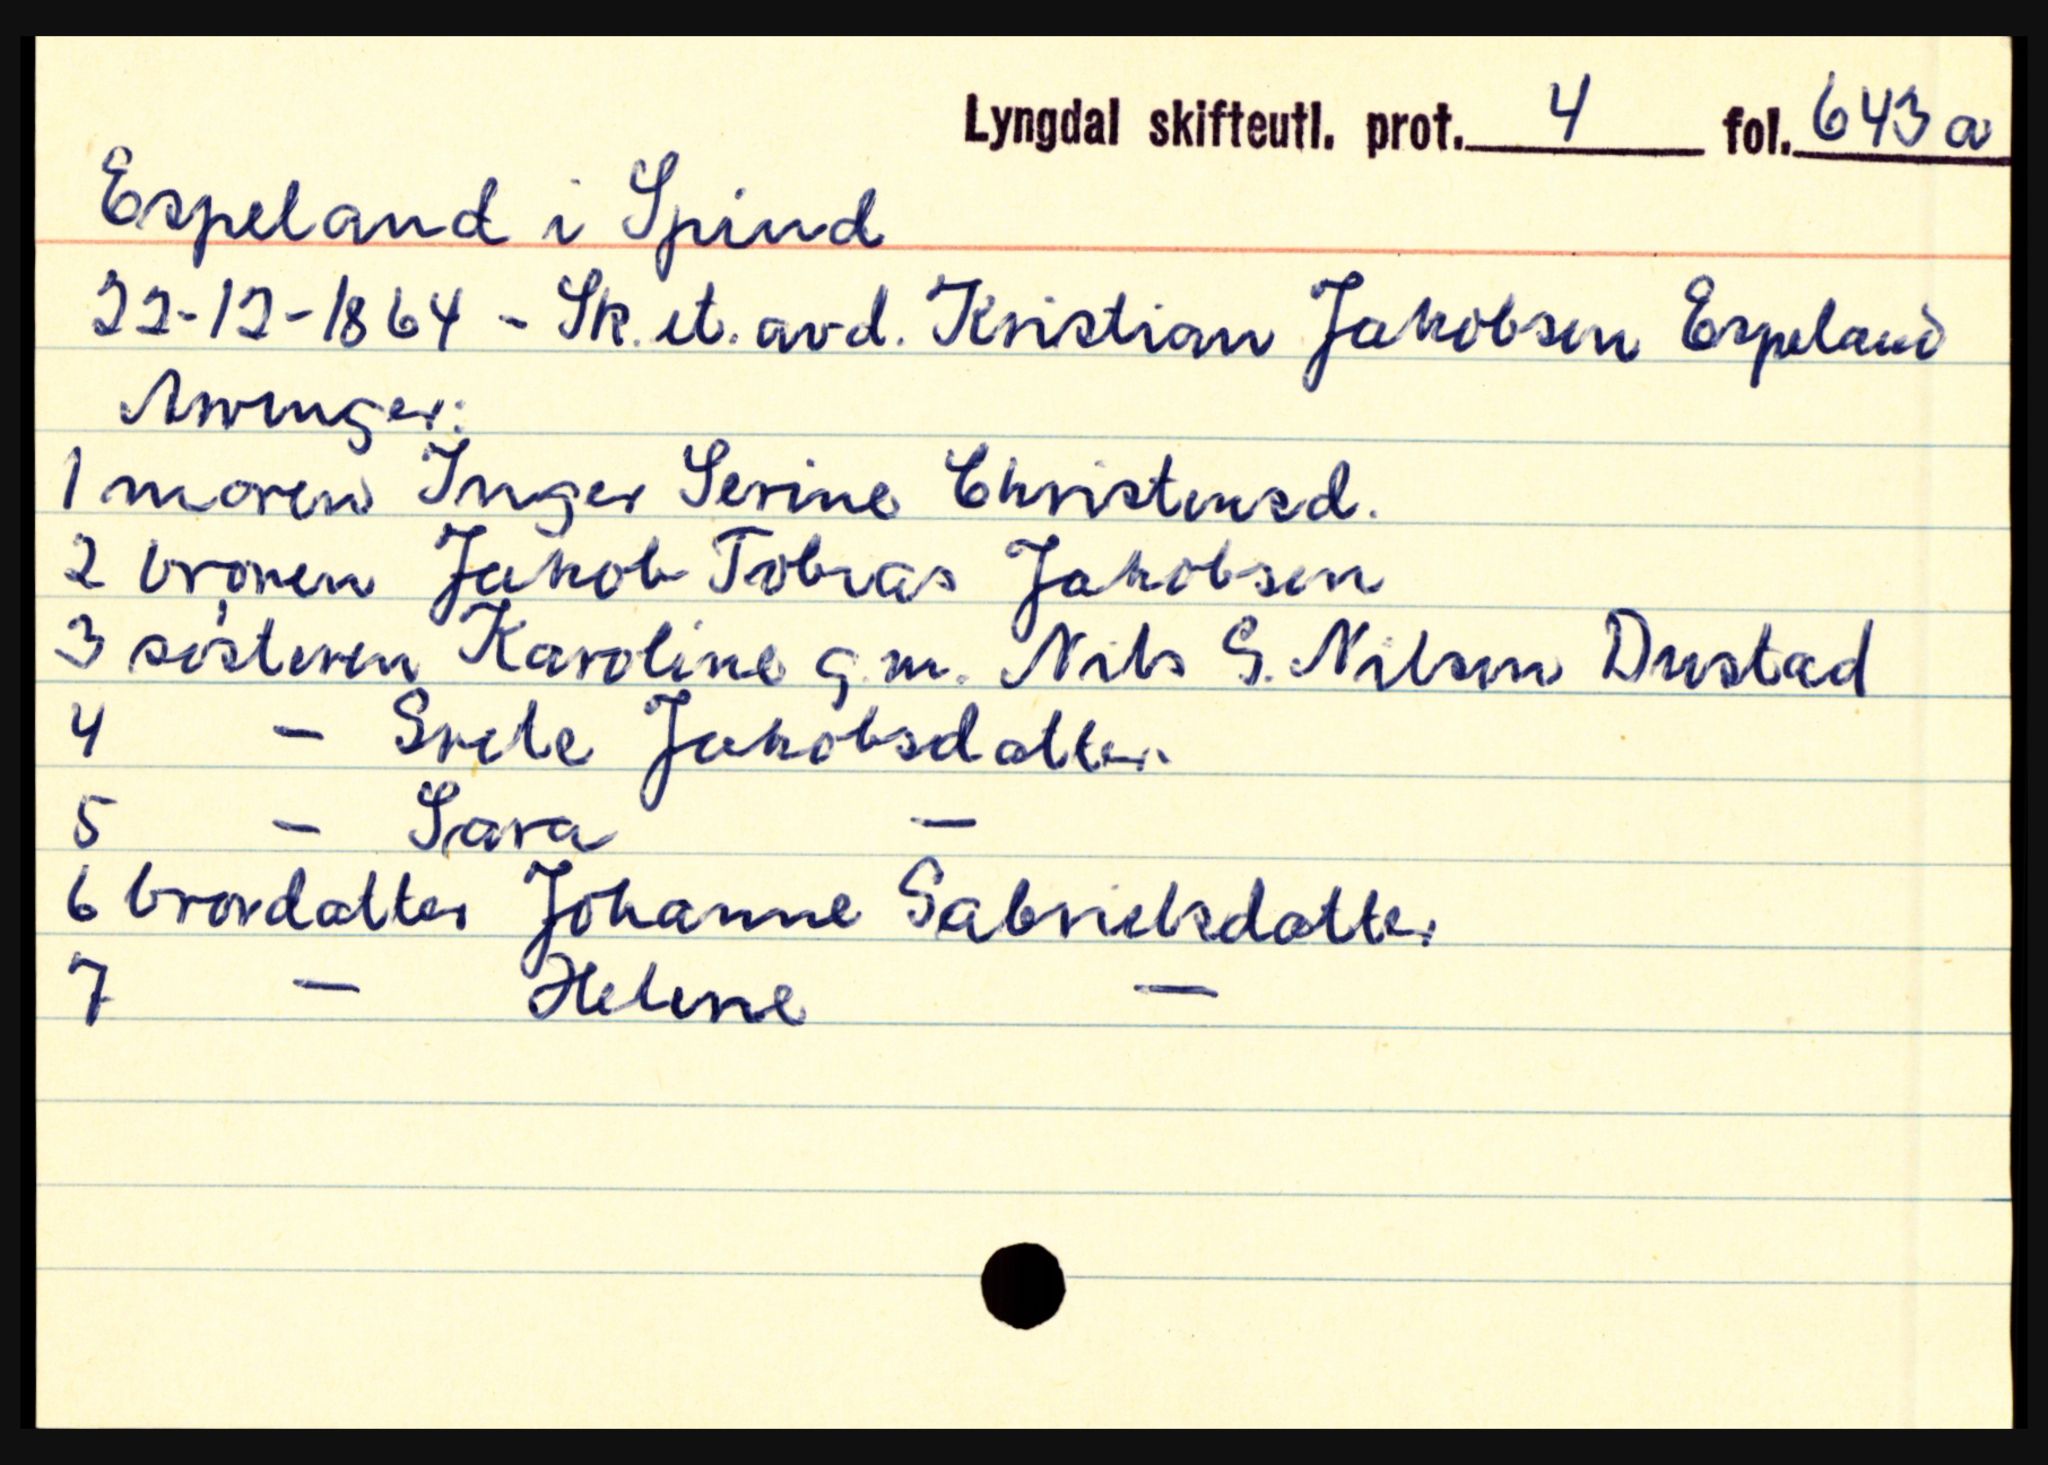 Lyngdal skifteutl. prot. 4 fol. 643a
Espeland i Spind
22-12-1864 - Sk. et. avd. Kristian Jakobsen Espeland
Arvinger:
1 moren Inger Serine Christensd.
2 broren Jakob Tobias Jakobsen
3 søsteren Karoline g.m. Nils G. Nilsen Drestad
4 - Grete Jakobsdatter
5 - Sara -
6 brordatter Johanne Gabrielsdatter
7 - Helene -